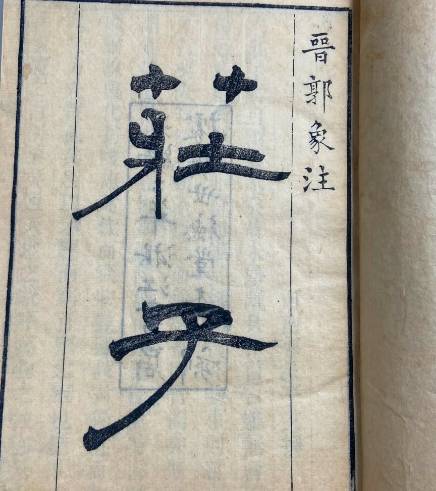 晉郭象注
莊子